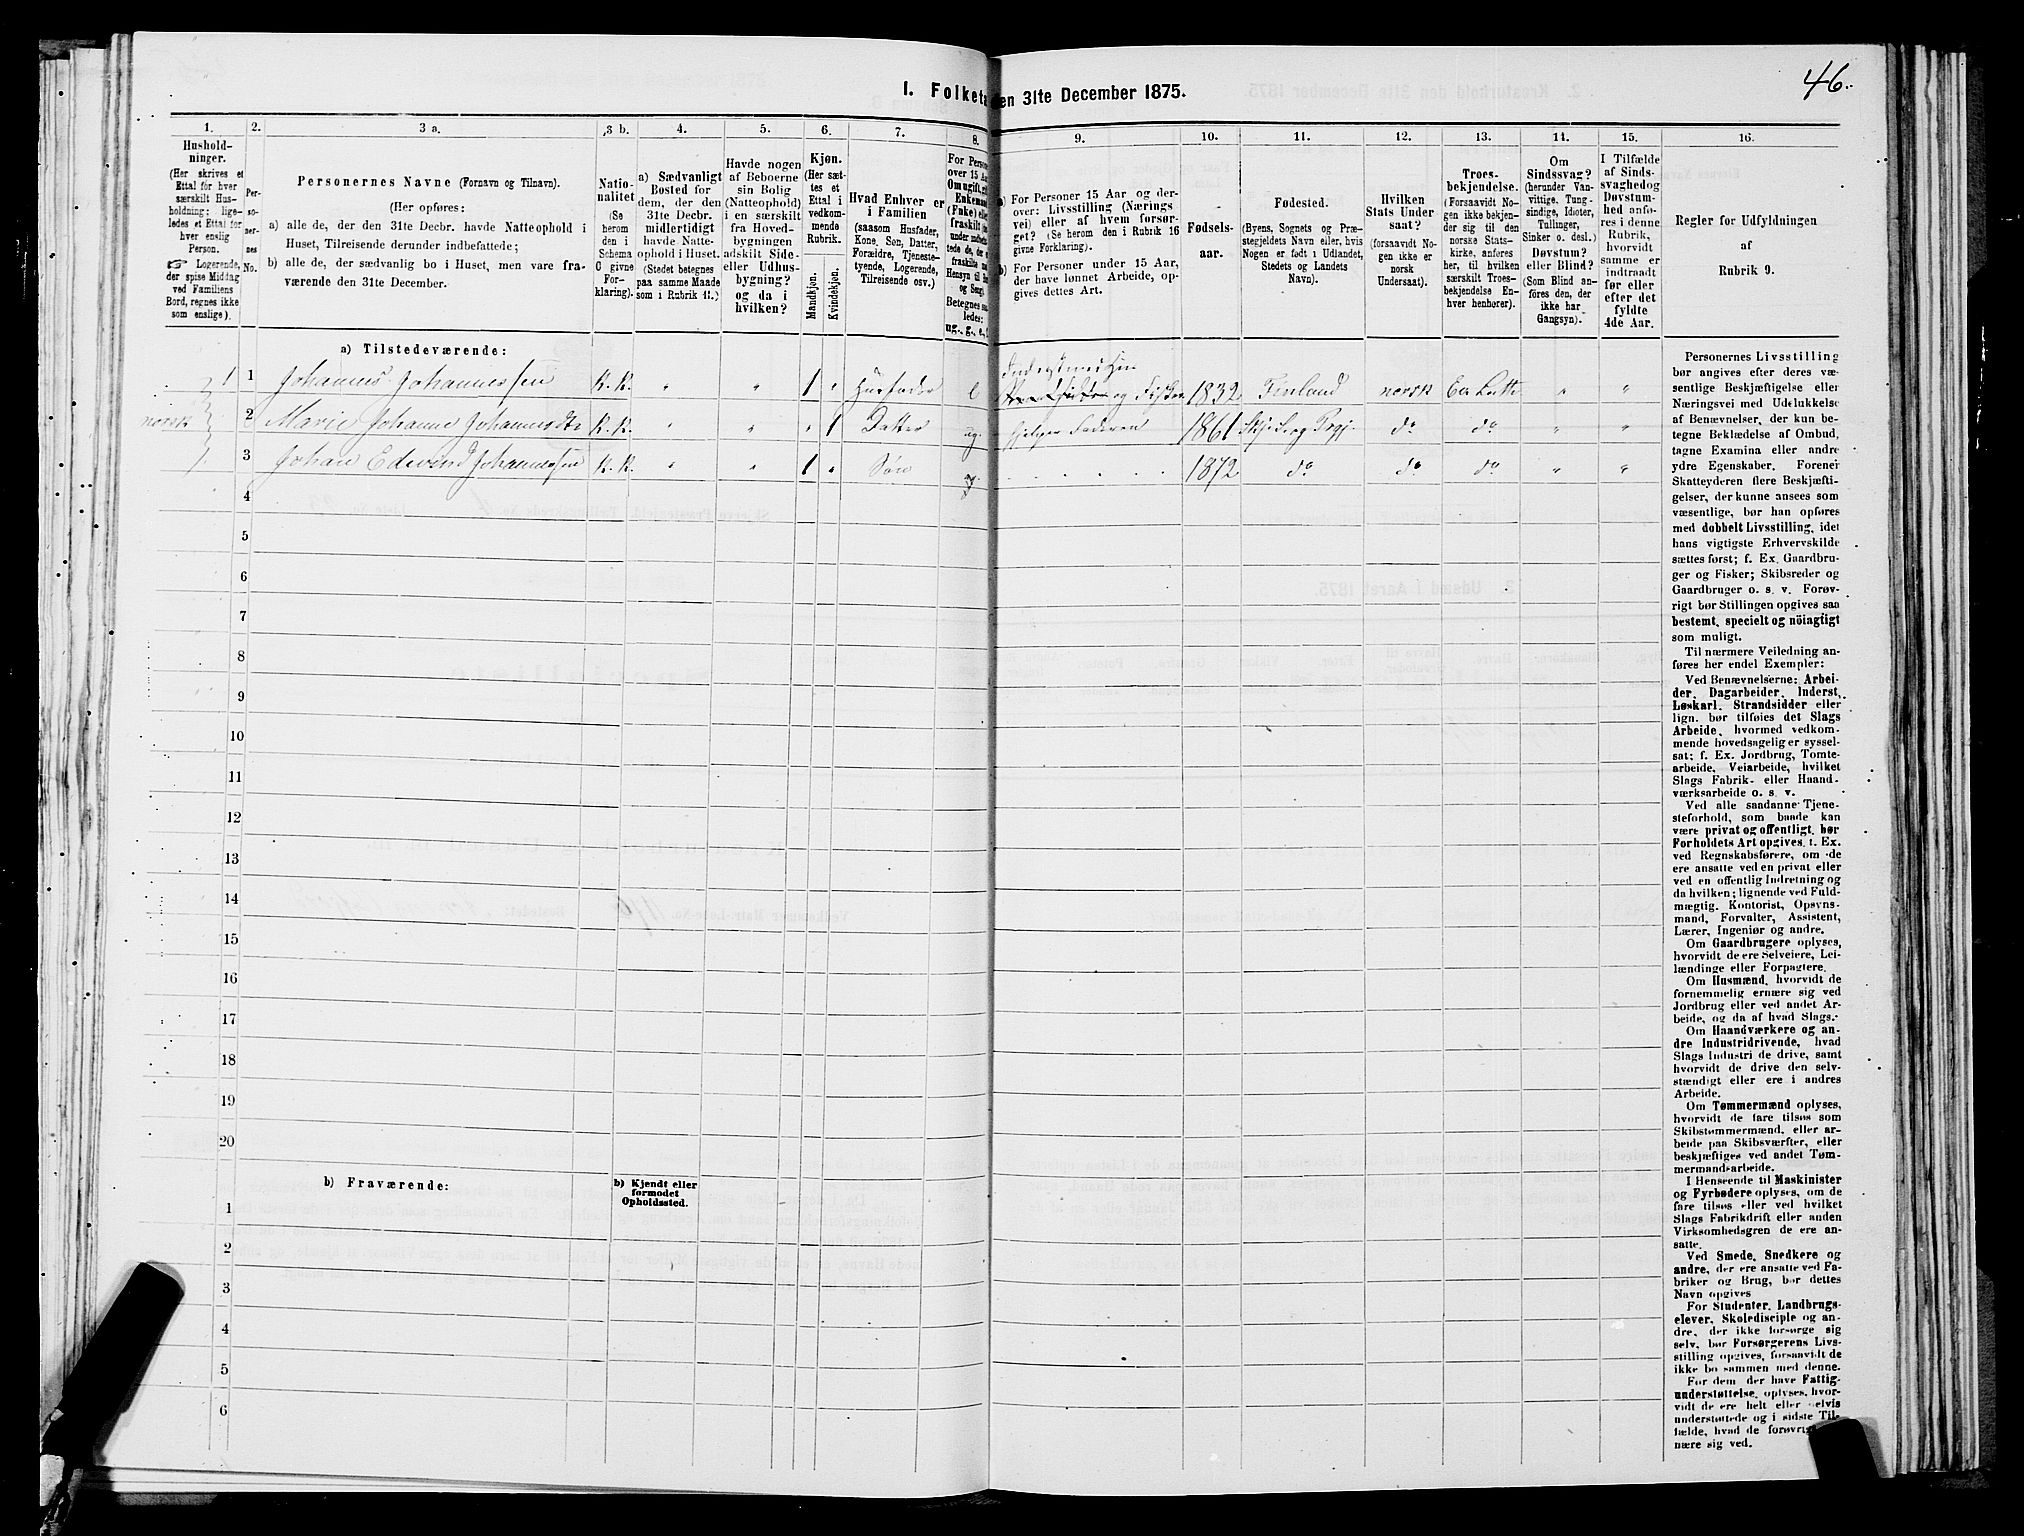 46.
1. Folketæ en 31te December 1875.
1. 2. 3 a. 3 b. 4. 5. 6. 7. 8. 9. 10. 11. 12. 13. 14. 15. 16.
Hushold-
ninger.
(Her skrives et
Ettal for hver
særskilt Hus-
holdning; lige-
ledes et Ettal for
hver enslig
Person.
☞ Logerende,
der spise Middag
ved Familiens
Bord, regnes ikke
som enslige).
Per-
so-
ner-
nes
No.
Personernes Navne (Fornavn og Tilnavn).
(Her opføres:
a) alle de, der den 31te Decbr. havde Natteophold i
Huset, Tilreisende derunder indbefattede;
b) alle de, der sædvanlig bo i Huset, men vare fra-
værende den 31te December.
Natio-
nalitet
(Se
herom
den i
Schema
C givne
For-
klaring).
a) Sædvanligt
Bosted for
dem, der den
31te Decbr.
midlertidigt
havde Natte-
ophold i Huset.
(Stedet betegnes
paa samme Maade
som i Rubrik 11.)
Havde nogen
af Beboerne
sin Bolig
(Natteophold)
i en særskilt
fra Hoved-
bygningen
adskilt Side-
eller Udhus-
bygning?
og da i
hvilken?
Kjøn.
(Her sæt-
tes et
Ettal i
vedkom-
mende
Rubrik.
Mandkjøn.
Kvindekjøn.
Hvad Enhver er
i Familien
(saasom Husfader,
Kone, Søn, Datter,
Forældre, Tjeneste-
tyende, Logerende,
Tilreisende osv.)
For Perso
over 15 Aa
Om ugift, gi
Enkeman
(Enke) elle
fraskilt m
under indbe
tede de, d
fraskilte m
Hensyn til B
og Seng).
Betegnes saa
ledes:
ug., g., e.,
a) For Personer 15 Aar og der-
over: Livsstilling (Nærings-
vei) eller af hvem forsør-
get? (Se herom den i Rubrik 16
givne Forklaring).
b) For Personer under 15 Aar,
der have lønnet Arbeide, op-
gives dettes Art.
Fødsels-
aar.
Fødested.
(Byens, Sognets og Præ-
stegjeldets Navn eller, hvis
Nogen er født i Udlandet,
Stedets og Landets
Navn).
Hvilken
Stats Under-
saat?
(forsaavidt No-
gen ikke er
norsk
Undersaat).
Troes-
bekjendelse.
(Forsaavidt No-
gen ikke bekjen-
der sig til den
norske Stats-
kirke, anføres
her, til hvilken
særskilt Troes-
bekjendelse En-
hver henhører).
Om
Sindssvag?
(herunder Van-
vittige, Tung-
sindige, Idioter,
Tullinger,
Sinker o. desl.)
Døvstum?
eller Blind?
(Som Blind an-
føres den, der
ikke har
Gangsyn).
I Tilfælde
af Sinds-
svaghed og
Døvstum-
hed anfø-
res i denne
Rubrik,
hvorvidt
samme er
indtraadt
før eller
efter det
fyldte
4de Aar.
Regler for Udfyldningen
af
Rubrik 9.
a) Tilstedeværende:
1 1 Johannes Johannessen K. K. " " 1 " Husfader e Inderst med Hus og Fisker 1832 Finland norsk Ev. Luth " "
norsk 2 Marie Johanne Johannesdtr K. K. " " " 1 Datter ug. hjelper Faderen 1861 Skjerv Prgj. do do " "
3 Johan Edevind Johannessen K. K. " " 1 " Søn 1872 do do do " "
4
5
6
7
8
9
10
11
12
13
14
15
16
17
18
19
20
b) Fraværende:
b) Kjendt eller
formodet
Opholdssted.
1
2
3
4
5
6
Personernes Livsstilling
bør angives efter deres væ-
sentlige Beskjæftigelse eller
Næringsvei med Udelukkelse
af Benævnelser, der kun be-
tegne Beklædelse af Ombud,
tagne Examina eller andre
ydre Egenskaber. Forener
Skatteyderen flere Beskjæfti-
gelser, der kunne ansees som
væsentlige, bør han opføres
med dobbelt Livsstilling, idet
hans vigtigste Erhvervskilde
sættes først; f. Ex. Gaardbru-
ger og Fisker; Skibsreder og
Gaardbruger o. s. v. Forøv-
rigt bør Stillingen opgives saa
bestemt, specielt og nöiagtigt
som muligt.
Til nærmere Veiledning an-
føres her endel Exempler:
Ved Benævnelserne: Arbei-
der, Dagarbeider, Inderst,
Løskarl, Strandsidder eller
lign. bør tilføies det Slags
Arbeide, hvormed vedkom-
mende hovedsagelig er syssel-
sat; f. Ex. Jordbrug, Tomte-
arbeide, Veiarbeide, hvilket
Slags Fabrik- eller Haand-
værksarbeide o. s. v.
Ved alle saadanne Tjene-
steforhold, som baade kan
være privat og offentligt, bør
Forholdets Art opgives, t. Ex.
ved Regnskabsførere, om de
ere ansatte ved en privat eller
ved en offentlig Indretning og
da hvilken; lignende ved Fuld-
mægtig, Kontorist, Opsyns-
mand, Forvalter, Assistent,
Lærer, Ingeniør og andre.
Om Gaardbrugere oplyses,
hvorvidt de ere Selveiere, Lei-
lændinge eller Forpagtere.
Om Husmænd, hvorvidt de
fornemmelig ernære sig ved
Jordbrug eller ved andet Ar-
beide, og da af hvad Slags.
Om Haandværkere og an-
dre Industridrivende, hvad
Slags Industri de drive, samt
hvorvidt de drive den selv-
stændigt eller ere i andres
Arbeide.
Om Tømmermænd oplyses,
hvorvidt de fare tilsøs som
Skibstømmermænd, eller ar-
beide paa Skibsværfter, eller
beskjæftiges ved andet Tøm-
mermandsarbeide.
I Henseende til Maskinister
og Fyrbødere oplyses, om de
fare tilsøs eller ved hvilket
Slags Fabrikdrift eller anden
Virksomhedsgren de ere an-
satte.
Ved Smede, Snedkere og
andre, der ere ansatte ved Fa-
briker og Brug, bør dettes
Navn opgives
For Studenter, Landbrugs-
elever, Skoledisciple og an-
dre, der ikke forsørge sig
selv, bør Forsørgerens Livs-
stilling opgives, forsaavidt de
ikke bo sammen med denne.
For dem, der have Fattig-
understøttelse, oplyses, hvor-
vidt de ere helt eller delvis
understøttede og i sidste Til-
fælde, hvad de forøvrigt
nære sig ved.